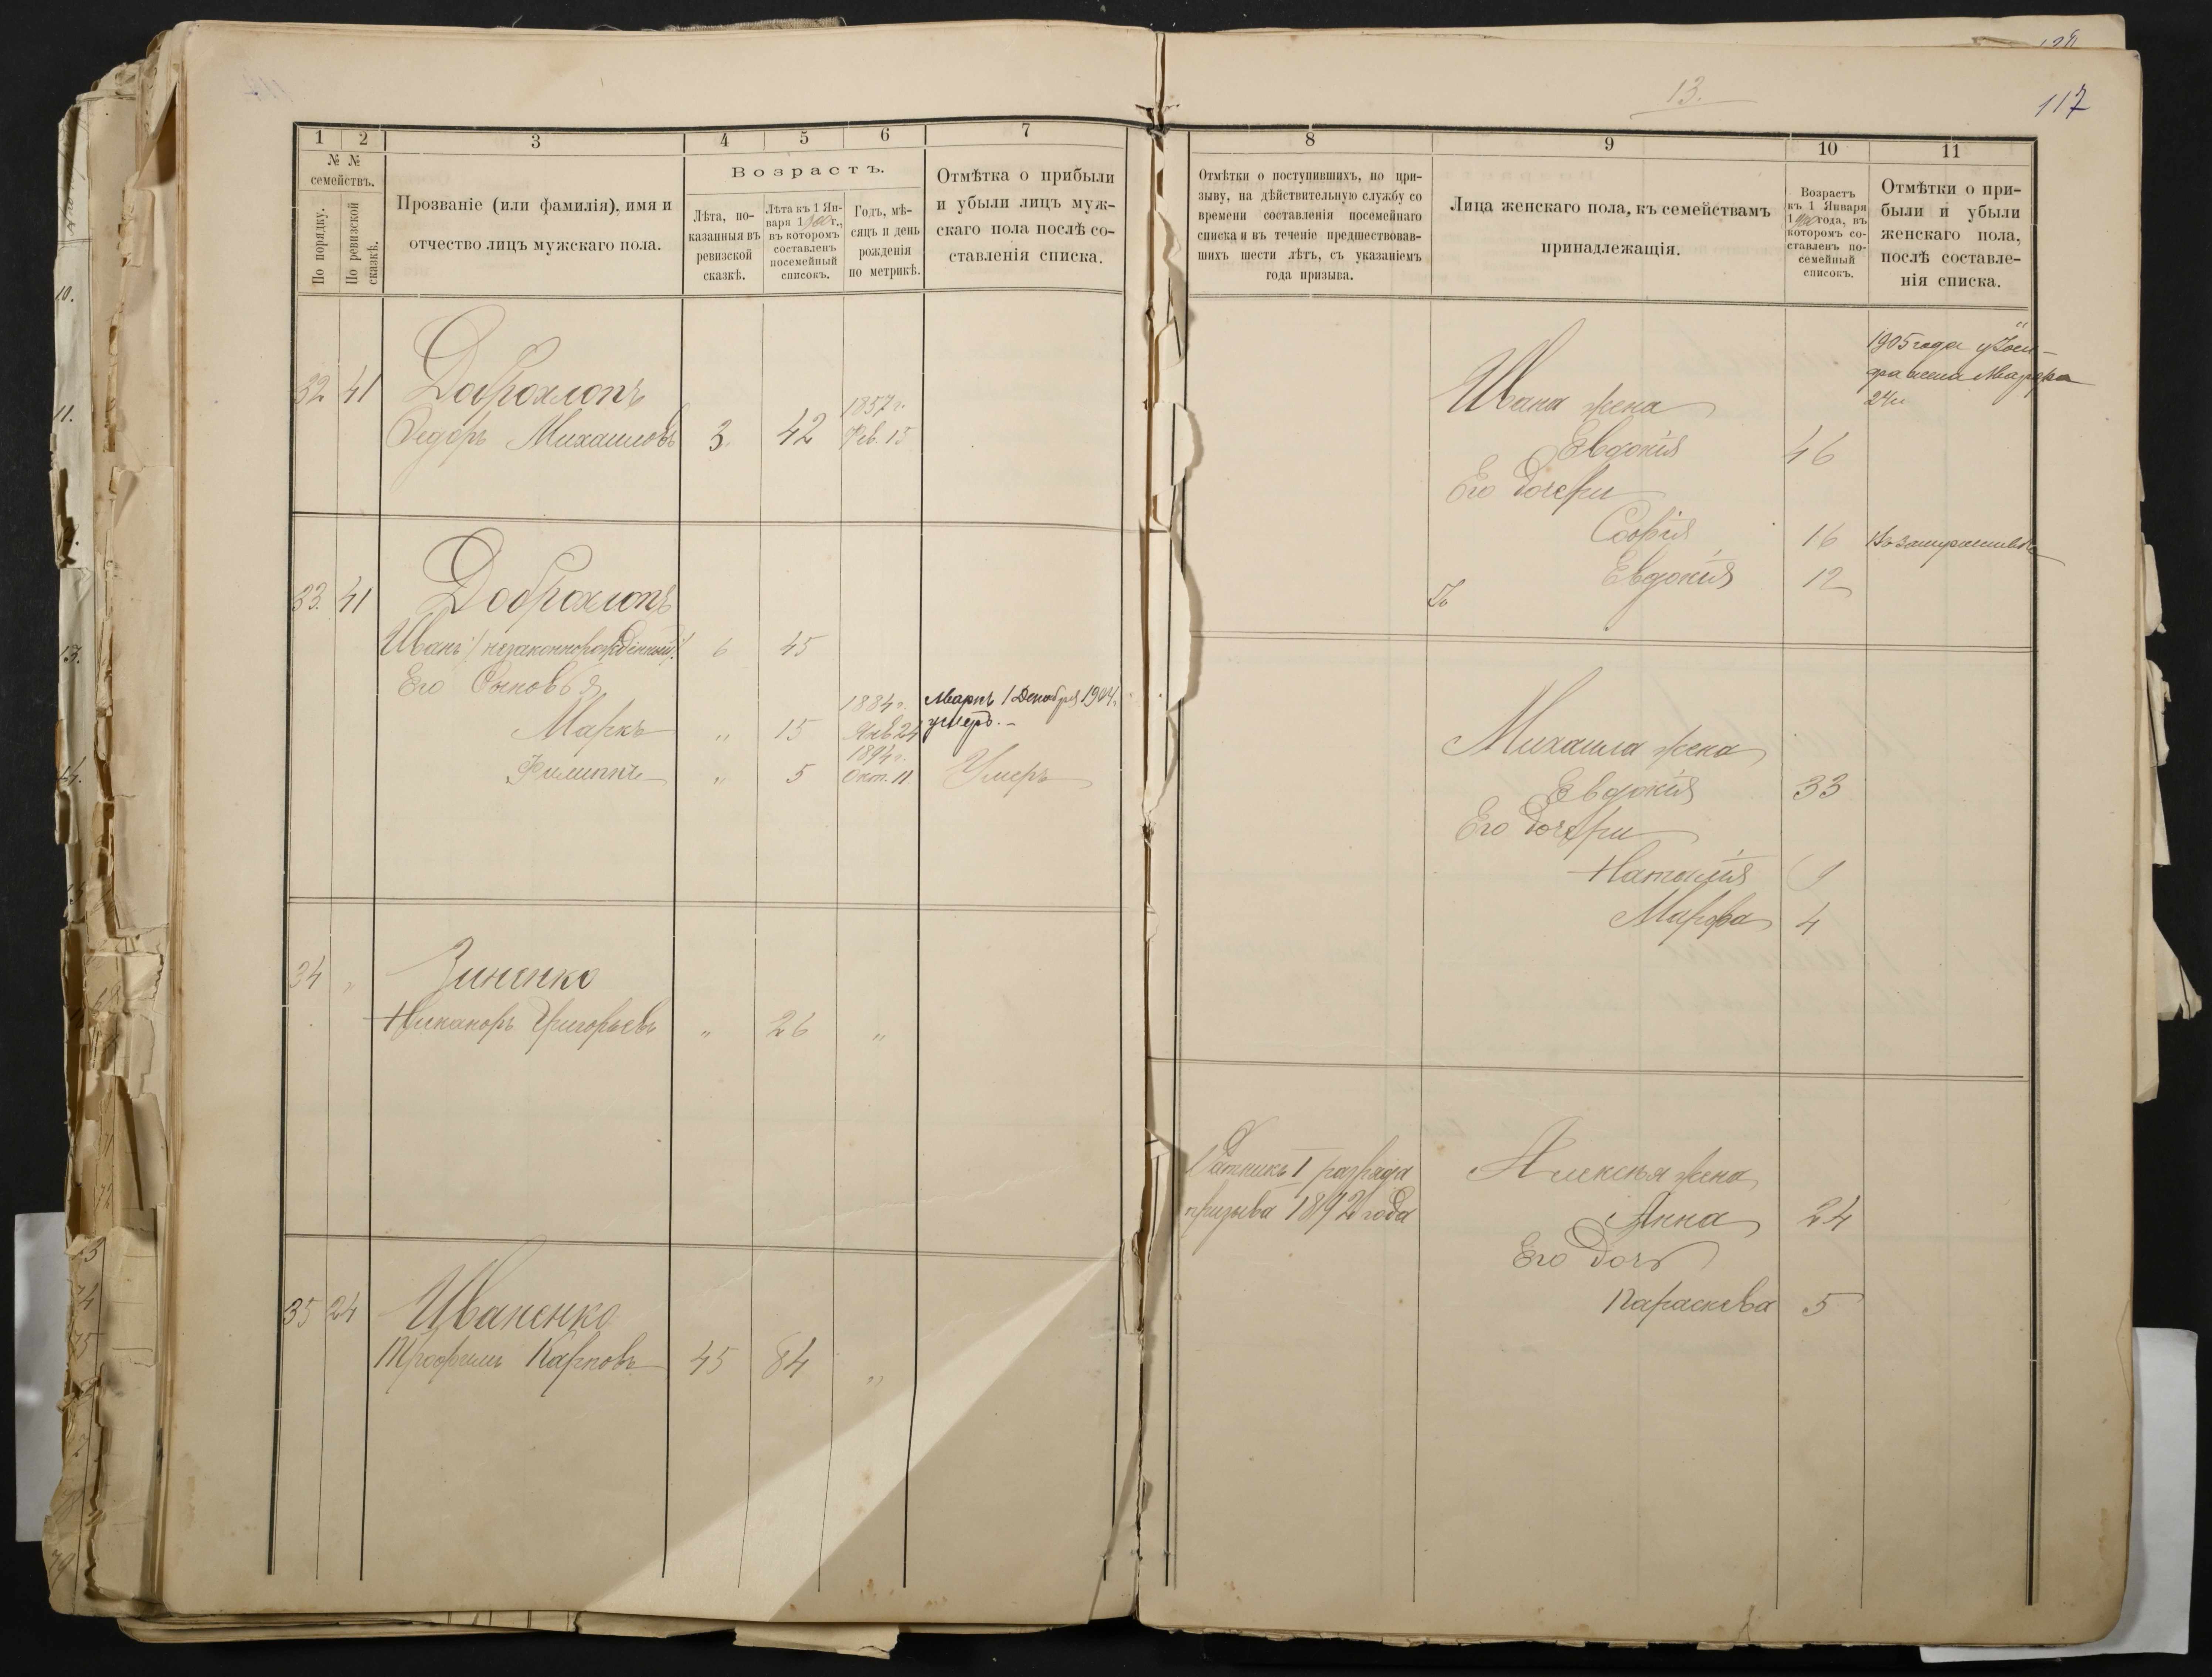 1
2
3
4
5
6
7
№ №
семействъ.
По порядку.
По ревизской сказкѣ.
Прозваніе (или фамилія), имя и
отчество лицъ мужскаго пола.
Возрастъ.
Лѣта, по-
казанныя въ
ревизской
сказкѣ.
Лѣта къ 1 Ян-
варя 1900 г.,
въ которомъ
составленъ
посемейный
списокъ.
Годъ, мѣ-
сяцъ и день
рожденія
по метрикѣ.
Отмѣтка о прибыли
и убыли лицъ муж-
скаго пола послѣ со-
ставленія списка.
32 41 Доброхлопъ
Федоръ Михаиловъ 3 42 1857 г.
Фев. 15
33. 41 Доброхлопъ
Иванъ /незаконнорожденный/ 6 45
Его Сыновья
Маркъ „ 15 1884 г.
Янв 24
Маркъ 1 Декабря 1904 г.
умеръ. –
Филиппъ „ 5 1894 г.
Окт. 11 Умеръ
34 „ Зиненко
Никаноръ Григорьевъ „ 26 „
35 24 Иваненко
Трофимъ Карповъ 45 84 „
13.
117
8
9
10
11
Отмѣтки о поступившихъ, по при-
зыву, на дѣйствительную службу со
времени составленія посемейнаго
списка и въ теченіе предшествовав-
шихъ шести лѣтъ, съ указаніемъ
года призыва.
Лица женскаго пола, къ семействамъ
принадлежащія.
Возрастъ
къ 1 Января
1900 года, въ
которомъ со-
ставленъ по-
семейный
списокъ.
Отмѣтки о при-
были и убыли
женскаго пола,
послѣ составле-
нія списка.
1905 года
жена Марфа
24
Ивана жена
Евдокія 46
Его дочери
Софія 16 Въ замужествѣ
Евдокія 12
Михаила жена
Евдокія 33
Его дочери
Наталія 9
Марфа 4
Ратникъ I разряда
призыва 1892 года
Алексѣя жена
Анна 24
Его дочь
Параскева 5